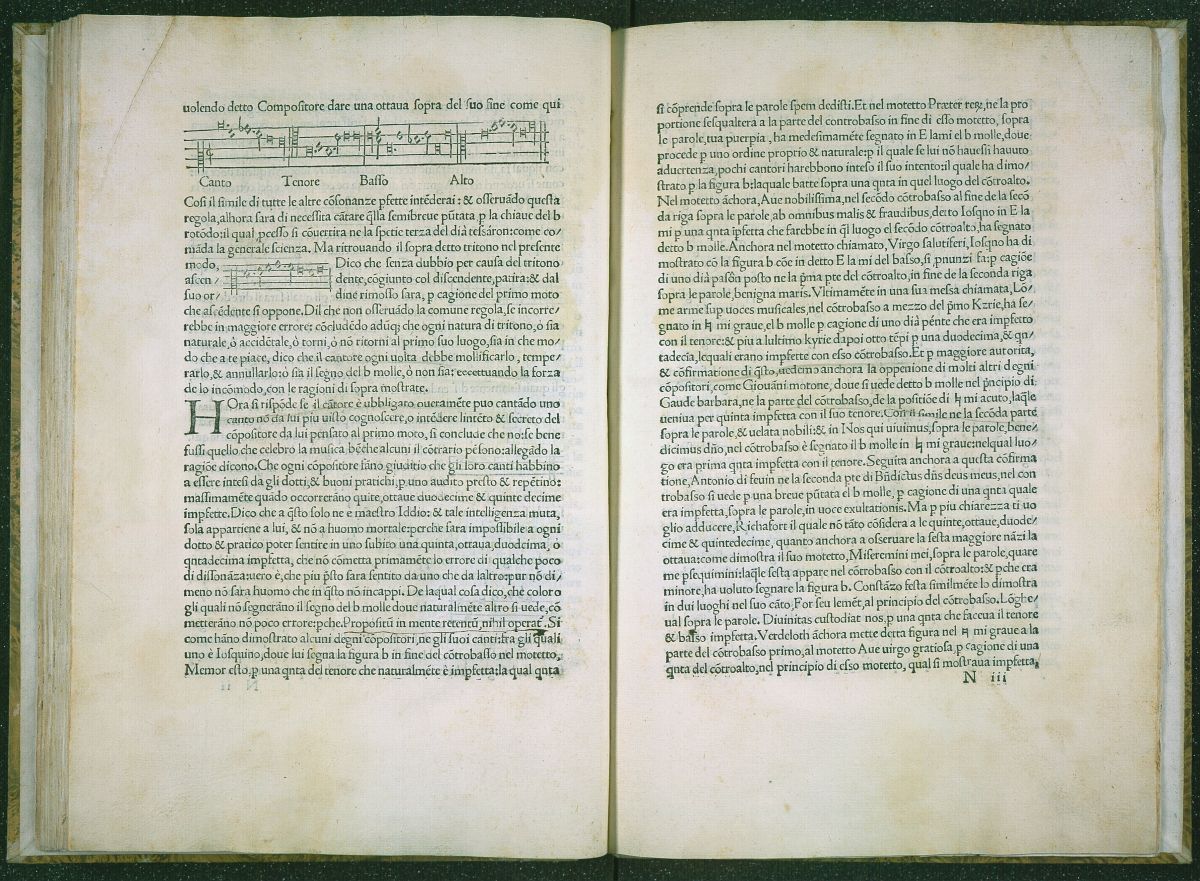 uolendo detto Compositore dare una ottaua sopra del suo fine come qui
Canto Tenore Basso Alto
Cosi il simile di tutte le altre cõsonanze pfette intẽderai: & osseruãdo questa
regola, alhora sara di necessita cãtare q̃lla semibreue pũtata p la chiaue del b
rotõdo: il qual pcesso si cõuertira ne la spetie terza del diatessaron: come co/
mãda la generale scienza. Ma ritrouando il sopra detto tritono nel presente
modo, Dico che senza dubbio per causa del tritono
ascen/ dente, cõgiunto col discendente, patira: & dal
suo or/ dine rimosso sara, p cagione del primo moto
che ascẽdente si oppone. Dil che non osseruãdo la comune regola, se incorre/
rebbe in maggiore errore: cõcludẽdo adũq; che ogni natura di tritono, ò sia
naturale, ò accidẽtale, ò torni, ò nõ ritorni al primo suo luogo, sia in che mo/
do che a te piace, dico che il cantore ogni uolta debbe mollificarlo, tempe/
rarlo, & annullarlo: ò sia il segno del b molle, ò non sia: eccettuando la forza
de lo incõmodo, con le ragioni di sopra mostrate.
HOra si rispõde se il cãtore è ubbligato oueramẽte puo cantãdo uno
canto nõ da lui piu uisto cognoscere, o intẽdere lintẽto & secreto del
cõpositore da lui pensato al primo moto, si conclude che no: se bene
fussi quello che celebro la musica bẽche alcuni il cõtrario pẽsono: allegãdo la
ragiõe dicono. Che ogni cõpositore fãno giuditio che gli loro canti habbino
a essere intesi da gli dotti, & buoni pratichi, p uno audito presto & repẽtino:
massimamẽte quãdo occorrerãno quite, ottaue duodecime & quinte decime
impfette. Dico che a q̃sto solo ne è maestro Iddio: & tale intelligenza muta,
sola appartiene a lui, & nõ a huomo mortale: perche sara impossibile a ogni
dotto & pratico poter sentire in uno subito una quinta, ottaua, duodecima, ò
qntadecima impfetta, che nõ cõmetta primamẽte lo errore di qualche poco
di dissonãza: uero è, che piu p̃sto sara sentito da uno che da laltro: pur nõ di/
meno nõ sara huomo che in q̃sto nõ incappi. De laqual cosa dico, che coloro
gli quali nõ segnerãno il segno del b molle doue naturalmẽte altro si uede, cõ
metterãno nõ poco errore: pche. Propositũ in mente retentũ, nihil operat̃. Si
come hãno dimostrato alcuni degni cõpositori, ne gli suoi canti: fra gli quali
uno è Iosquino, doue lui segna la figura b in fine del cõtrobasso nel motetto,
Memor esto, p una qnta del tenore che naturalmẽte è impfetta: la qual qnta
si cõprende sopra le parole spem dedisti. Et nel motetto Præter reꝝ, ne la pro
portione sesqualtera a la parte del controbasso in fine di esso motetto, sopra
le parole, tua puerpia, ha medesimamẽte segnato in E lami el b molle, doue
procede p uno ordine proprio & naturale: p il quale se lui nõ hauessi hauuto
aduertenza, pochi cantori harebbono inteso il suo intento: il quale ha dimo/
strato p la figura b: laquale batte sopra una qnta in quel luogo del cõtroalto.
Nel motetto ãchora, Aue nobilissima, nel secõdo cõtrobasso al fine de la secõ
da riga sopra le parole, ab omnibus malis & fraudibus, detto Iosqno in E la
mi p una qnta ĩpfetta che farebbe in q̃l luogo el secõdo cõtroalto, ha segnato
detto b molle. Anchora nel motetto chiamato, Virgo salutiferi, Iosqno ha di
mostrato cõ la figura b cõe in detto E la mi del basso, si pnunzi fa: p cagiõe
di uno diapasõn posto ne la p̃ma pte del cõtroalto, in fine de la seconda riga
sopra le parole, benigna maris. Vltimamẽte in una sua messa chiamata, Lõ/
me armè sup uoces musicales, nel cõtrobasso a mezzo del p̃mo Kzrie, ha se/
gnato in ♮ mi graue, el b molle p cagione di uno diapẽnte che era impfetto
con il tenore: & piu a lultimo kyrie dapoi otto tẽpi p una duodecima, & qn/
tadecia, lequali erano impfette con esso cõtrobasso. Et p maggiore autorita,
& cõfirmatione di q̃sto, uedemo anchora la oppenione di molti altri degni
cõpositori, come Giouãni motone, doue si uede detto b molle nel p̃ncipio di
Gaude barbara, ne la parte del cõtrobasso, de la positiõe di ♮ mi acuto, laq̃le
ueniua per quinta impfetta con il suo tenore. Con il simile ne la secõda parte
sopra le parole, & uelata nobili: & in Nos qui uiuimus, sopra le parole, bene/
dicimus dño, nel cõtrobasso è segnato il b molle in ♮ mi graue: nelqual luo/
go era prima qnta impfetta con il tenore. Seguita anchora a questa cõfirma
tione, Antonio di feuin ne la seconda pte di Bñdictus dñs deus meus, nel con
trobasso si uede p una breue pũtata el b molle, p cagione di una qnta quale
era impfetta, sopra le parole, in uoce exultationis. Ma p piu chiarezza ti uo
glio adducere, Richafort il quale nõ tãto cõsidera a le quinte, ottaue, duode/
cime & quintedecime, quanto anchora a osseruare la sesta maggiore nãzi la
ottaua: come dimostra il suo motetto, Miseremini mei, sopra le parole, quare
me psequimini: laq̃le sesta appare nel cõtrobasso con il cõtroalto: & pche era
minore, ha uoluto segnare la figura b. Constãzo festa similmẽte lo dimostra
in dui luoghi nel suo cãto, For seu lemẽt, al principio del cõtrobasso. Lõghe/
ual sopra le parole. Diuinitas custodiat nos, p una qnta che faceua il tenore
& basso impfetta. Verdeloth ãchora mette detta figura nel ♮ mi graue a la
parte del cõtrobasso primo, al motetto Aue uirgo gratiosa, p cagione di una
qnta del cõtroalto, nel principio di esso motetto, qual si mostraua impfetta,
N iii